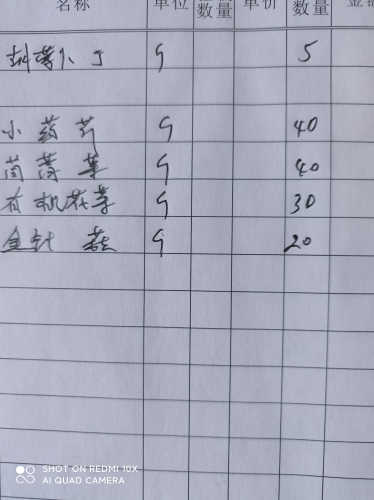 名称 单位 数量 单价 数量 金额
胡萝卜丁 斤 5
小药芹 斤 40
茼蒿菜 斤 40
有机花菜 斤 30
金针菇 斤 20
SHOT ON REDMI 10X
AI QUAD CAMERA